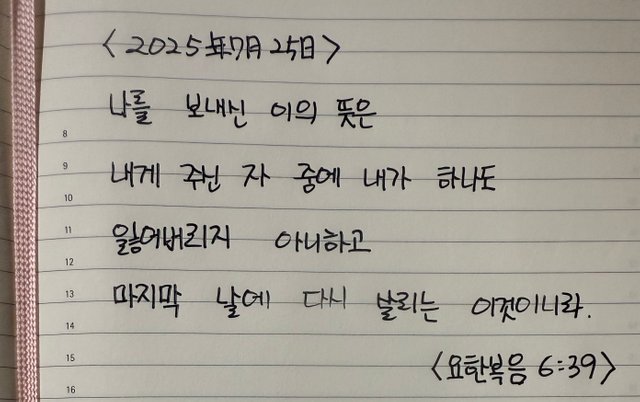 <2025年7月25日>
나를 보내신 이의 뜻은
8
9
내게 주신 자 중에 내가 하나도
10
11
잃어버리지 아니하고
12
13
마지막 날에 다시 살리는 이것이니라.
14
15
<요한복음 6:39>
16